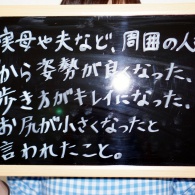 実母や夫など、周囲の人
から姿勢が良くなった、
歩き方がキレイになった、
お尻が小さくなったと
言われたこと。